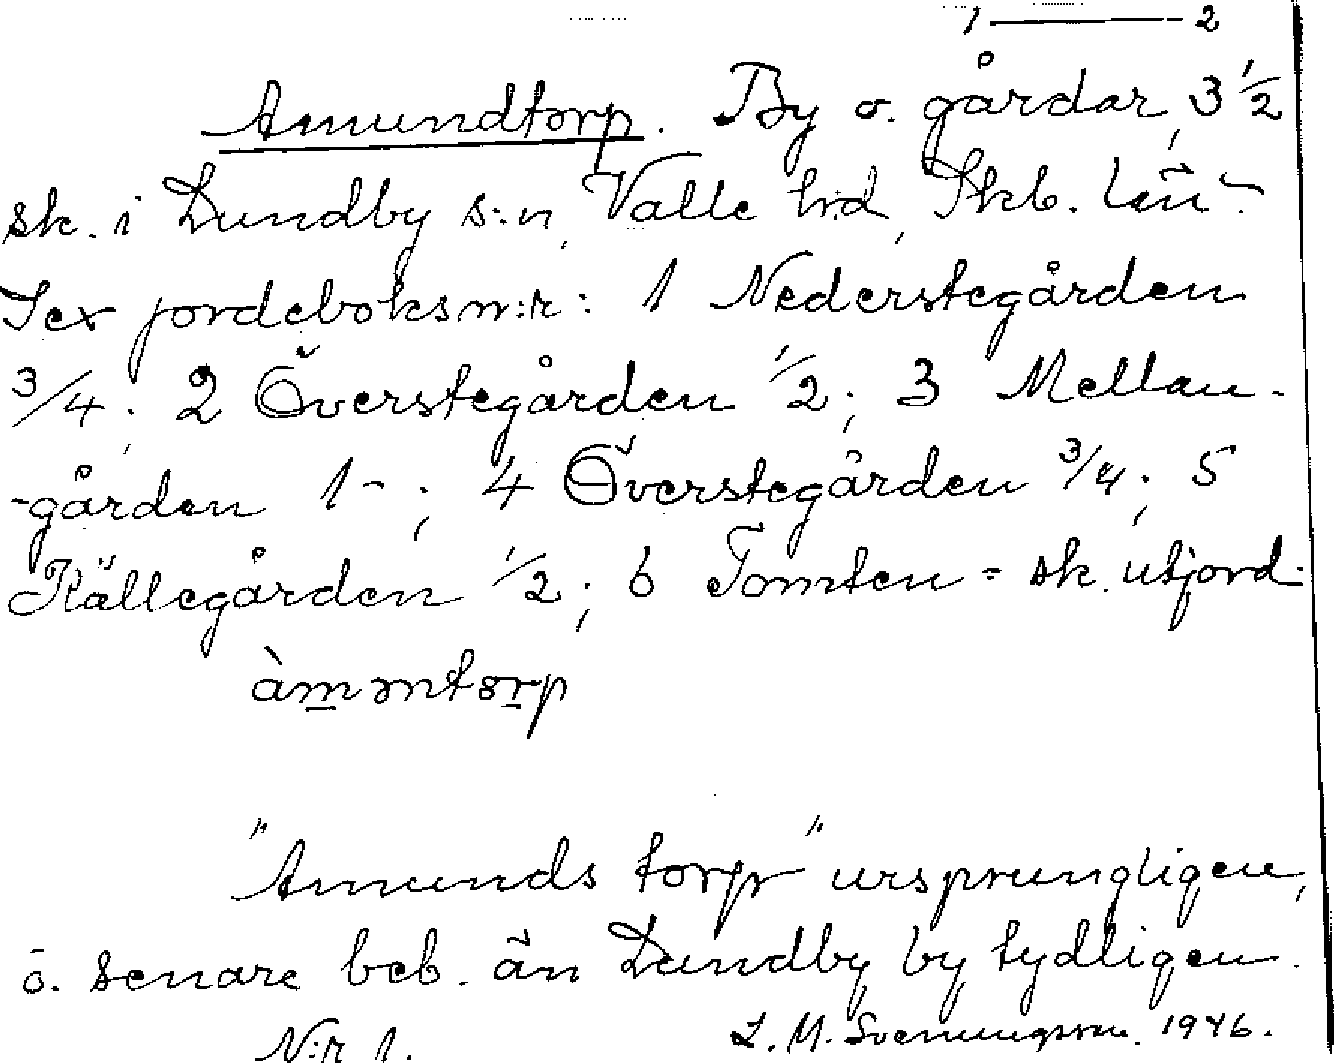 1 — 2
Amundtorp. By o. gårdar, 3 1/2
sk. i Lundby s:n, Valle hrd, Skb. län.
Sex jordeboksn:r: 1 Nederstegården
3/4; 2 Överstegården 1/2; 3 Mellan-
-gården 1 -; 4 Överstegården 3/4; 5
Källegården 1/2; 6 Tomten = sk. utjord.
àməntorp
"Amunds torp" ursprungligen,
o. senare beb. än Lundby by tydligen.
N:r 1. L. M. Svenungsson. 1946.